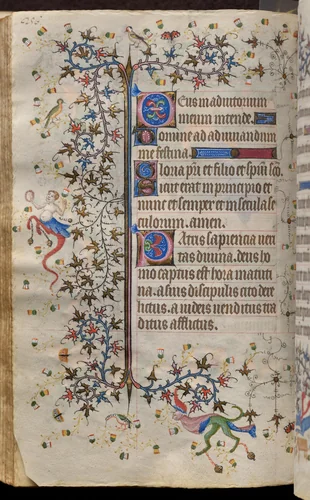 Deus in adiutorium
meum intende.
Domine ad adiuvandum
me festina.
Gloria pri et filio et spiui sco.
Sicut erat in principio et
nunc et semper et in secula se
culorum. amen.
Patris sapiencia veri
tas divina. deus ho
mo captus est hora matuti
na. a suis discipulis cito dere
lictus. a iudeis venditus tra
ditus afflictus.